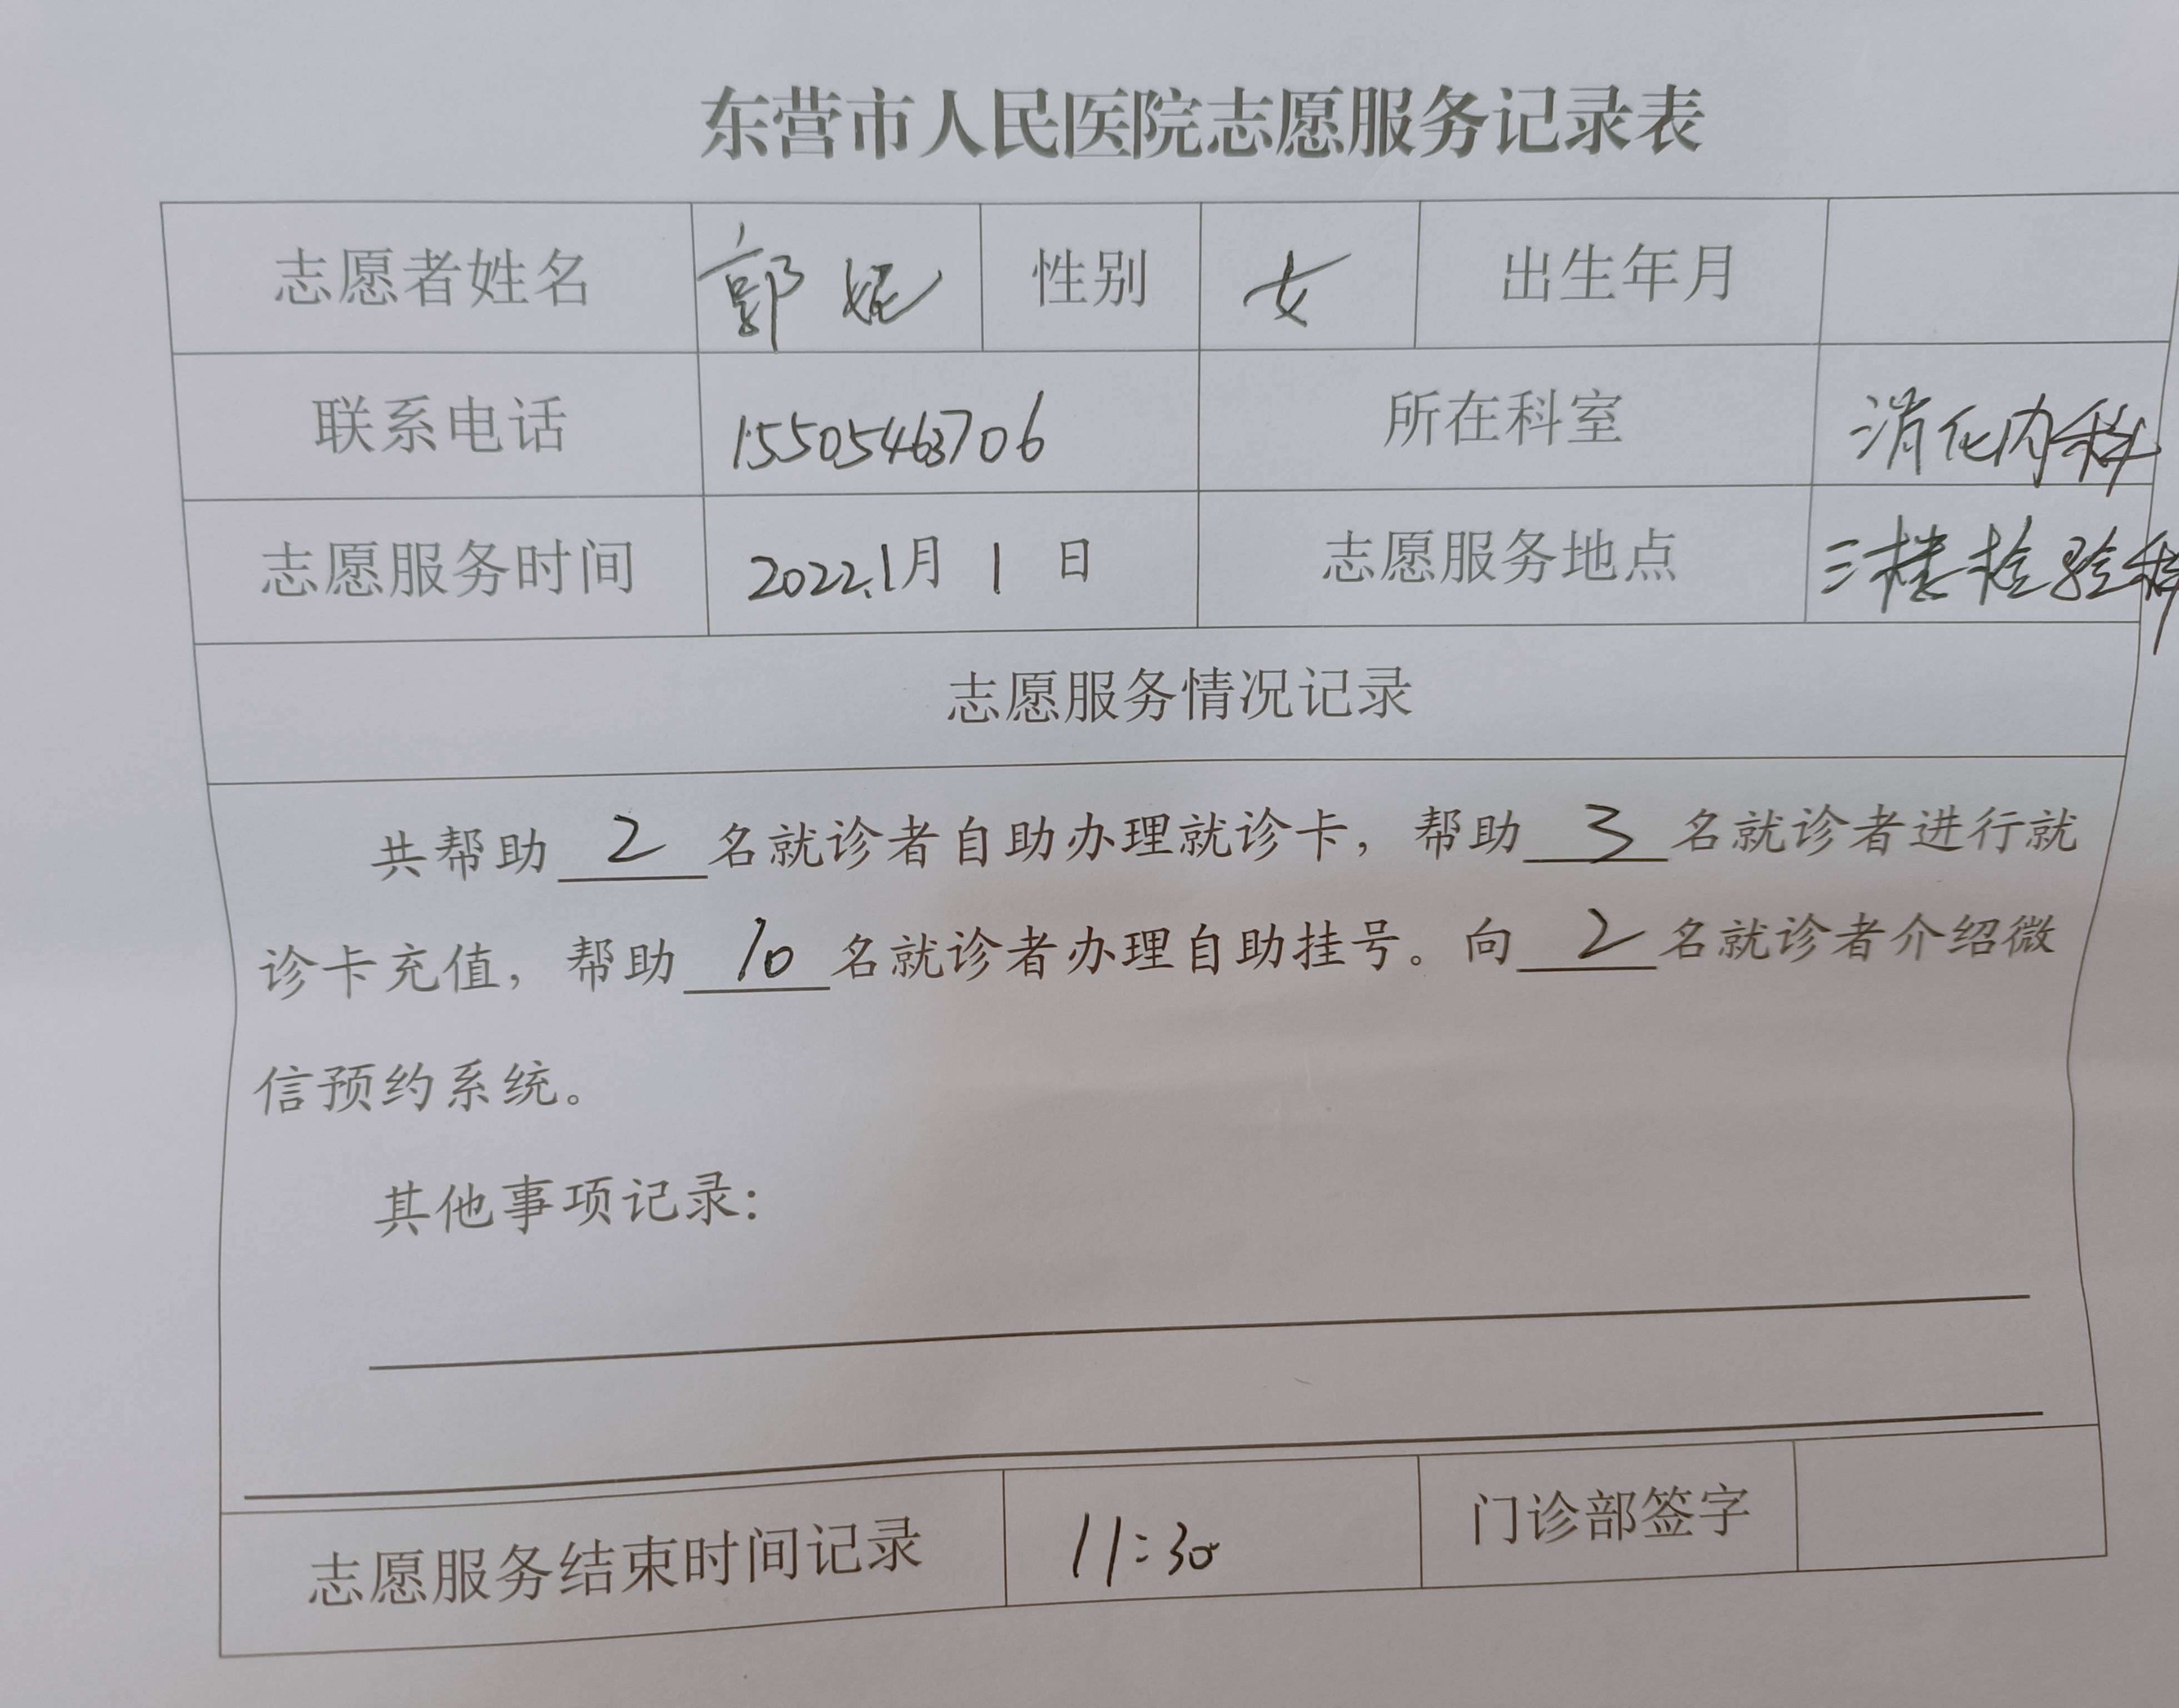 东营市人民医院志愿服务记录表
志愿者姓名 郭妮 性别 女 出生年月
联系电话 15505463706 所在科室 消化内科
志愿服务时间 2022.1月1日 志愿服务地点 三楼检验科
志愿服务情况记录
共帮助2名就诊者自助办理就诊卡，帮助3名就诊者进行就
诊卡充值，帮助10名就诊者办理自助挂号。向2名就诊者介绍微
信预约系统。
其他事项记录：
志愿服务结束时间记录 11:30 门诊部签字